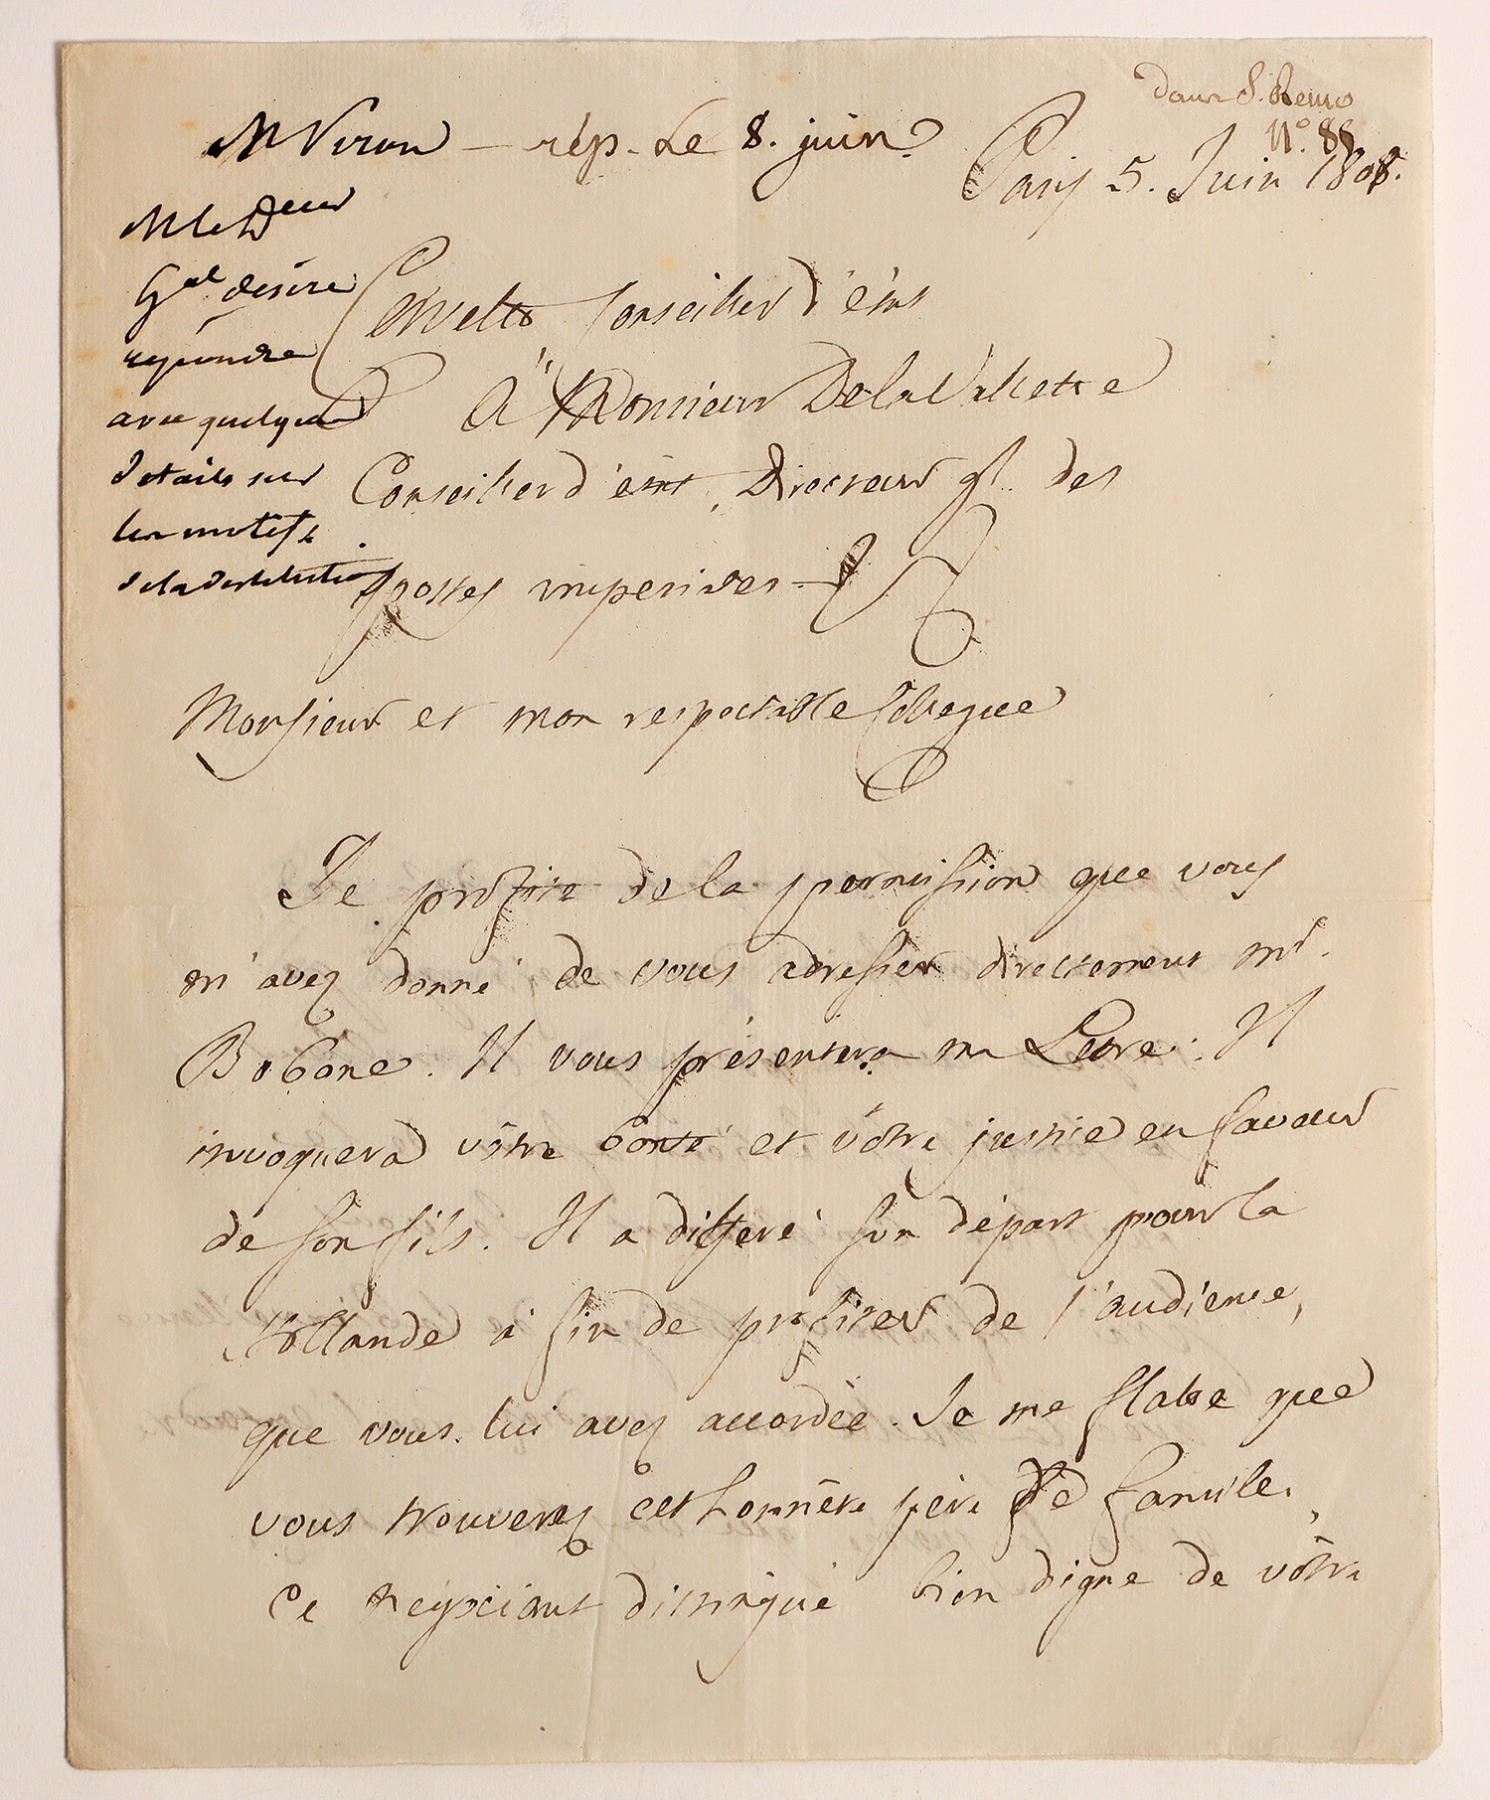 dans S. Remo
n°. 88
M Viron – rép. Le 8. juin.
Paris 5. Juin 1808.
M le D.eur
G.al desire
repondre
avec quelques
details sur
les motifs
de la destitution
Corvetto Conseiller d'état
À Monsieur De la Vallette
Conseiller d'état, Directeur gl. des
postes imperiales
Monsieur et mon respectable Collegue
Je profite de la permission que vous
m'avez donné de vous adresser directement Mr.
Bobone. Il vous présentera ma Lettre. Il
invoquera vôtre bonté et vôtre justice en faveur
de son fils. Il a differé son départ pour la
Hollande à fin de profiter de l'audience,
que vous lui avez accordée. Je me flatte que
vous trouverez cet honnête père de famille,
ce negociant distingué bien digne de vôtre